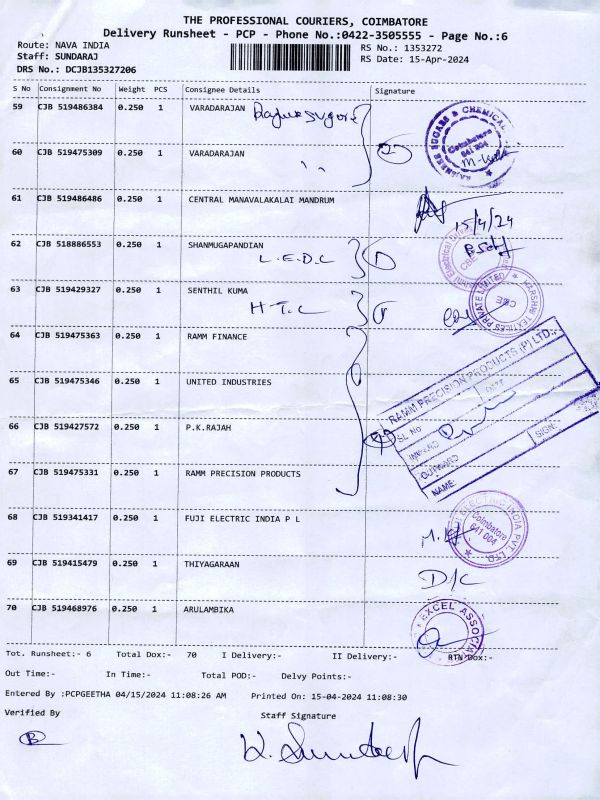 THE PROFESSIONAL COURIERS, COIMBATORE
Delivery Runsheet - PCP - Phone No.:0422-3505555 - Page No.:6
Route: NAVA INDIA
RS No.: 1353272
Staff: SUNDARAJ
RS Date: 15-Apr-2024
DRS No.: DCJB135327206
S No Consignment No Weight PCS Consignee Details Signature
59 CJB 519486384 0.250 1 VARADARAJAN
60 CJB 519475309 0.250 1 VARADARAJAN
61 CJB 519486486 0.250 1 CENTRAL MANAVALAKALAI MANDRUM
15/4/24
62 CJB 518886553 0.250 1 SHANMUGAPANDIAN
L.E.D.C
63 CJB 519429327 0.250 1 SENTHIL KUMA
H.T.C
64 CJB 519475363 0.250 1 RAMM FINANCE
65 CJB 519475346 0.250 1 UNITED INDUSTRIES
66 CJB 519427572 0.250 1 P.K.RAJAH
67 CJB 519475331 0.250 1 RAMM PRECISION PRODUCTS
RAMM PRECISION PRODUCTS (P) LTD.,
SL No
DATE
INWARD
OUTWARD
SIGN:
NAME:
68 CJB 519341417 0.250 1 FUJI ELECTRIC INDIA P L
ELECTRIC INDIA PVT. LTD
Coimbatore
641 004
69 CJB 519415479 0.250 1 THIYAGARAAN
D/C
70 CJB 519468976 0.250 1 ARULAMBIKA
Tot. Runsheet:- 6 Total Dox:- 70 I Delivery:- II Delivery:- RTN Dox:-
Out Time:- In Time:- Total POD:- Delvy Points:-
Entered By :PCPGEETHA 04/15/2024 11:08:26 AM Printed On: 15-04-2024 11:08:30
Verified By Staff Signature